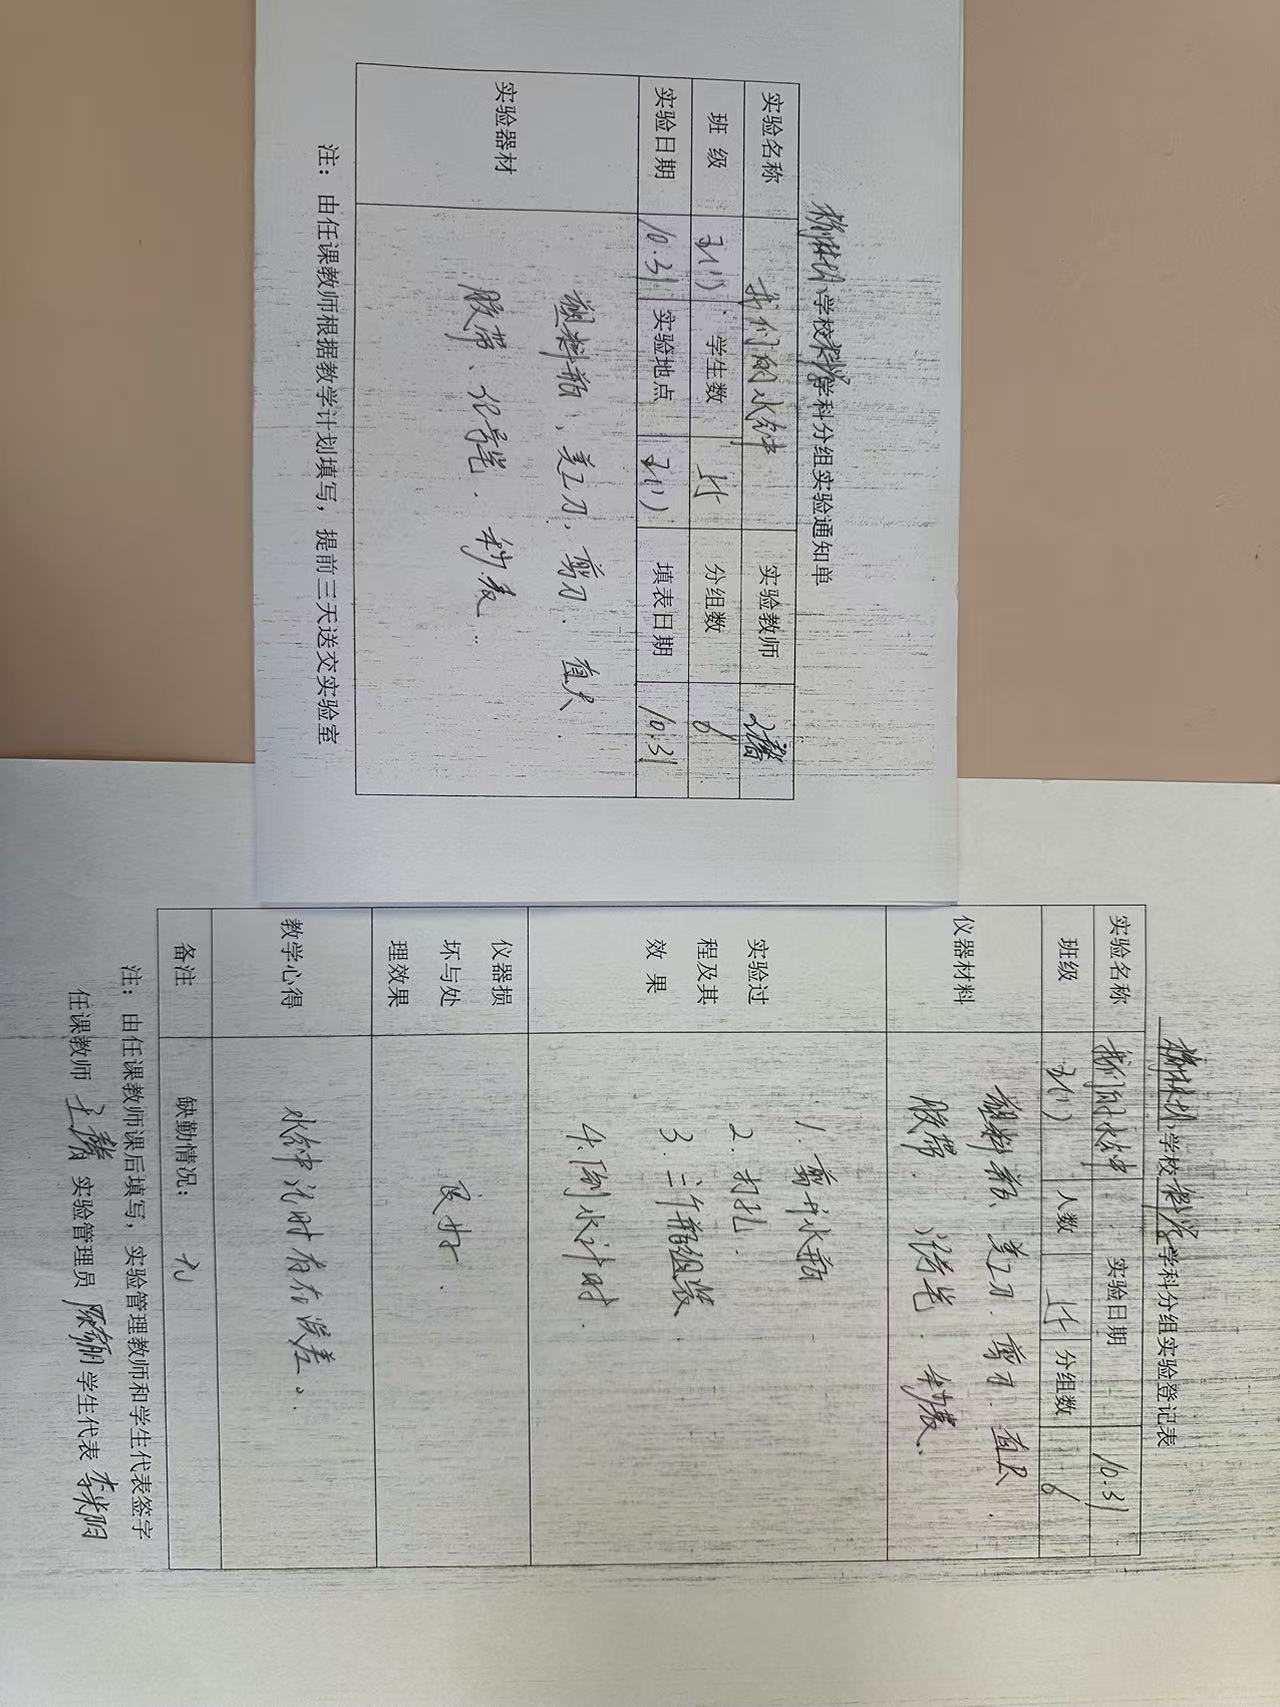 学校科学学科分组实验通知单
实验名称 我们的水钟 实验教师
班 级 五(1) 学生数 分组数 6
实验日期 10.31 实验地点 五(1) 填表日期 10.31
实验器材 塑料瓶、美工刀、剪刀、直尺、
胶带、记号笔、秒表
注：由任课教师根据教学计划填写，提前三天送交实验室
学校科学学科分组实验登记表
实验名称 我们的水钟 实验日期 10.31
班级 五(1) 人数 分组数 6
仪器材料 塑料瓶、美工刀、剪刀、直尺、
胶带、记号笔、秒表、
实验过程及其效果 1.剪开水瓶
2.打孔.
3.二个瓶组装
4.倒水计时.
仪器损坏与处理效果 良好.
教学心得 水钟计时存在误差。
备注 缺勤情况：无
注：由任课教师课后填写，实验管理教师和学生代表签字
任课教师 实验管理员 学生代表